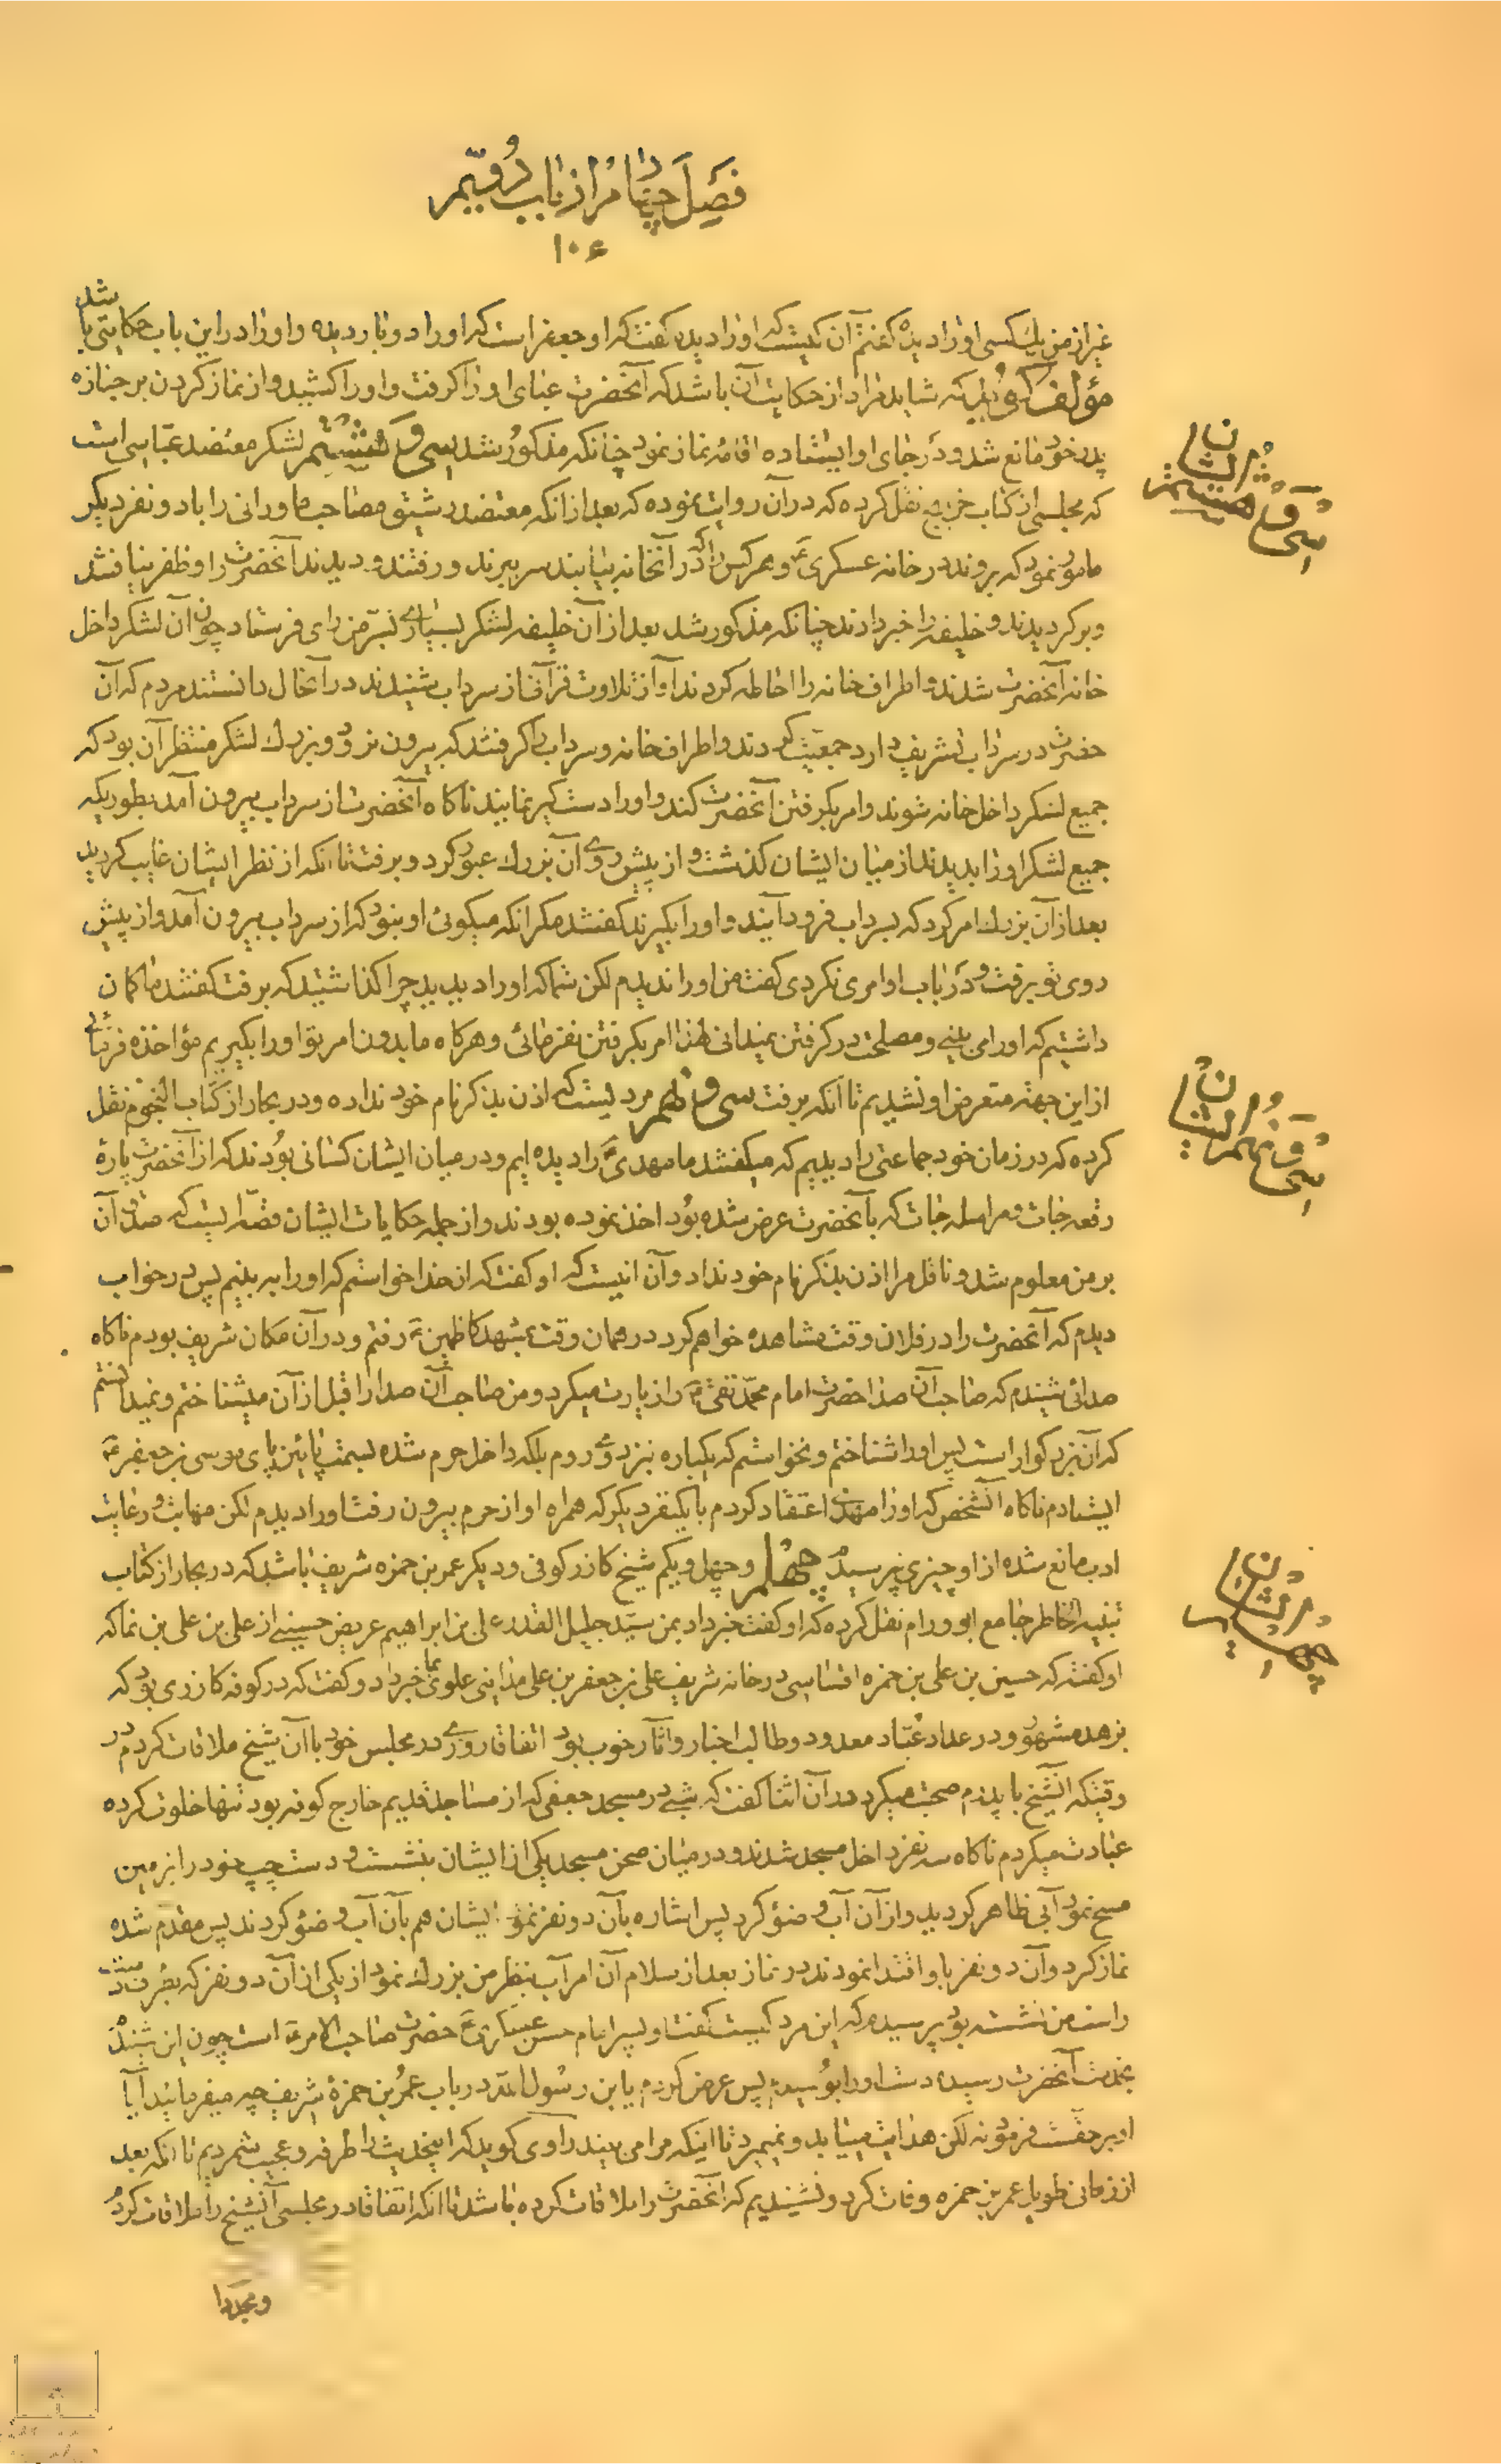 فصل چهارم از باب دویم
۱۰۶
غیر از من یک کسی او را دیده گفتم آن کیست که او را دیده گفت که او جعفر است که او را دو بار دیده و او را در این باب حکایتی باشد
مؤلف گوید که شاید مراد از حکایت آن باشد که آنحضرت عبای او را گرفت و او را کشید و از نماز کردن بر جنازه
پدر خود مانع شد و در جای او ایستاده اقامه نماز نمود چنانکه مذکور شد سی و هشتم لشکر معتضد عباسی است
که مجلسی از کتاب خرایج نقل کرده که در آن روایت نموده که بعد از انکه معتضد رشیق مصاحب ماورانی را با دو نفر دیگر
مامور نمود که بروند در خانه عسکری ع و هر کس را که در آنخانه بیابند سر ببرند و رفتند و دیدند آنحضرت را و ظفر نیافتند
و برگردیدند و خلیفه را خبر دادند چنانکه مذکور شد بعد از آن خلیفه لشکر بسیاری بسر من رای فرستاد چون آن لشکر داخل
خانه آنحضرت شدند و اطراف خانه را احاطه کردند آواز تلاوت قرآن از سرداب شنیدند در آنحال دانستند مردم که آن
حضرت در سرداب تشریف دارد جمعیت کردند و اطراف خانه و سرداب را گرفتند که بیرون نرود و بزرک لشکر منتظر آن بود که
جمیع لشکر داخل خانه شوند و امر بگرفتن آنحضرت کند و او را دست گیر نمایند ناگاه آنحضرت از سرداب بیرون آمد بطوریکه
جمیع لشکر او را بدیدند از میان ایشان گذشت و از پیش روی آن بزرک عبور کرد و برفت تا انکه از نظر ایشان غایب گردید
بعد از آن بزرک امر کرد که بسرداب فرود آیند و او را بگیرند گفتند مگر انکه میگوئی او نبود که از سرداب بیرون آمد و از پیش
روی تو برفت و در باب او امری نکردی گفت من او را ندیدم لکن شما که او را دیدید چرا گذاشتید که برفت گفتند ما گمان
داشتیم که او را می بینی و مصلحت در گرفتن نمیدانی لهذا امر بگرفتن نفرمائی و هر گاه ما بدون امر تو او را بگیریم مؤاخذه فرمائی
از این جهة متعرض او نشدیم تا آنکه برفت سی و نهم مردیست که اذن بذکر نام خود نداده و در بحار از کتاب النجوم نقل
کرده که در زمان خود جماعتی را دیدیم که میگفتند ما مهدی ع را دیده ایم و در میان ایشان کسانی بودند که از آنحضرت پارهٔ
رقعه جات و مراسله جات که بآنحضرت عرض شده بود اخذ نموده بودند و از جمله حکایات ایشان قصه ایست که صدق آن
بر من معلوم شد و ناقل مرا اذن بذکر نام خود نداد و آن اینست که او گفت که از خدا خواستم که او را به بینم پس در خواب
دیدم که آنحضرت را در فلان وقت مشاهده خواهم کرد در همان وقت بمشهد کاظمین ع رفتم و در آن مکان شریف بودم ناگاه
صدائی شنیدم که صاحب آن صدا حضرت امام محمد تقی ع را زیارت میکرد و من صاحب آن صدا را قبل از آن میشناختم و نمیدانستم
که آن بزرگوار است پس او را شناختم و نخواستم که یکباره نزد وی روم بلکه داخل حرم شده بسمت پائین پای موسی بن جعفر ع
ایستادم ناگاه آنشخص که او را مهدی اعتقاد کردم با یکنفر دیگر که همراه او از حرم بیرون رفت او را دیدم لکن مهابت و رعایت
ادب مانع شده از او چیزی نپرسیدم چهلم و چهل و یکم شیخ کازر کوفی و دیگر عمر بن حمزه شریف باشد که در بحار از کتاب
تنبیه الخاطر جامع ابو ورام نقل کرده که او گفت خبر داد بمن سید جلیل القدر علی بن ابراهیم عریض حسینی از علی بن علی بن نما که
او گفت که حسین بن علی بن حمزه اقساسی در خانه شریف علی بن جعفر بن علی مداینی علوی بما خبر داد و گفت که در کوفه کازری بود که
بزهد مشهور و در عداد عبّاد معدود و طالب اخبار و آثار خوب بود اتفاقا روزی در مجلس خود با آن شیخ ملاقات کردم در
وقتیکه آنشیخ با پدرم صحبت میکرد در آن اثنا گفت که شبی در مسجد جعفی که از مساجد قدیم خارج کوفه بود تنها خلوت کرده
عبادت میکردم ناگاه سه نفر داخل مسجد شدند و در میان صحن مسجد یکی از ایشان بنشست و دست چپ خود را بزمین
مسح نمود آبی ظاهر گردید و از آن آب وضؤ کرد پس اشاره بآن دو نفر نمود ایشان هم بآن آب وضؤ کردند پس مقدم شده
نماز کرد و آن دو نفر باو اقتدا نمودند در نماز بعد از سلام آن امر آب بنظر من بزرک نمود از یکی از آن دو نفر که بطرف دست
راست من نشسته بود پرسیدم که این مرد کیست گفت او پسر امام حسن عسکری ع حضرت صاحب الامر ع است چون این شنیدم
بخدمت آنحضرت رسیده دست او را بوسیدم پس عرض کردم یابن رسول الله در باب عمر بن حمزهٔ شریف چه میفرمائید آیا
او بر حق است فرمود نه لکن هدایت مییابد و نمیمیرد تا اینکه مرا می بیند راوی گوید که اینحدیث را طرفه و عجیب شمردیم تا انکه بعد
از زمانی طویل عمر بن حمزه وفات کرد و نشنیدیم که آنحضرت را ملاقات کرده باشد تا انکه اتفاقا در مجلسی آنشیخ را ملاقات کردم
و مجددا
سی و هشتم از ایشان
سی و نهم از ایشان
چهلم از ایشان